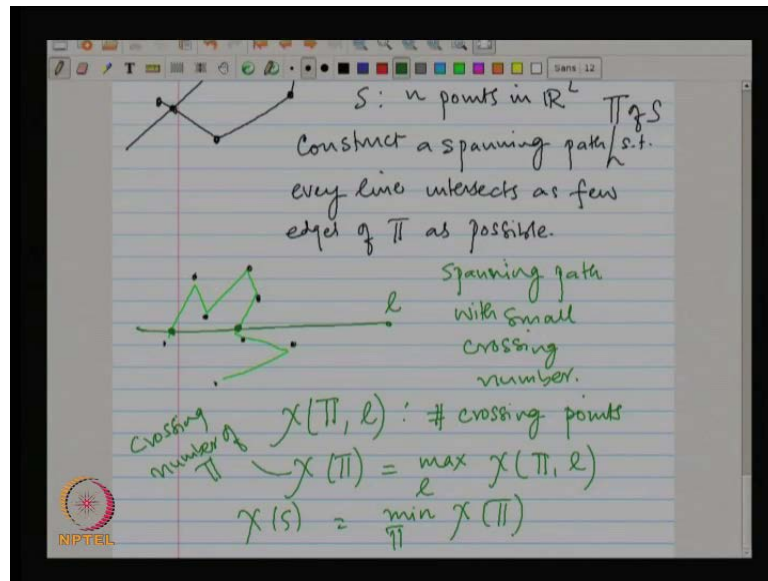 T
Sans 12
S: n points in ℝ²
Π of S
Construct a spanning path s.t.
every line intersects as few
edges of Π as possible.
spanning path
l
with small
crossing
number.
crossing
number of
Π
χ(Π, l) : # crossing points
χ(Π) = max_l χ(Π, l)
χ(S) = min_Π χ(Π)
NPTEL